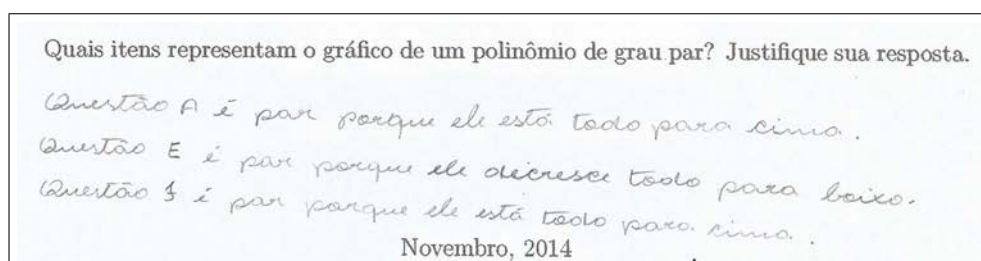 Quais itens representam o gráfico de um polinômio de grau par? Justifique sua resposta.
Questão A é par porque ele está todo para cima.
Questão E é par porque ele decresce todo para baixo.
Questão f é par porque ele está todo para cima.
Novembro, 2014